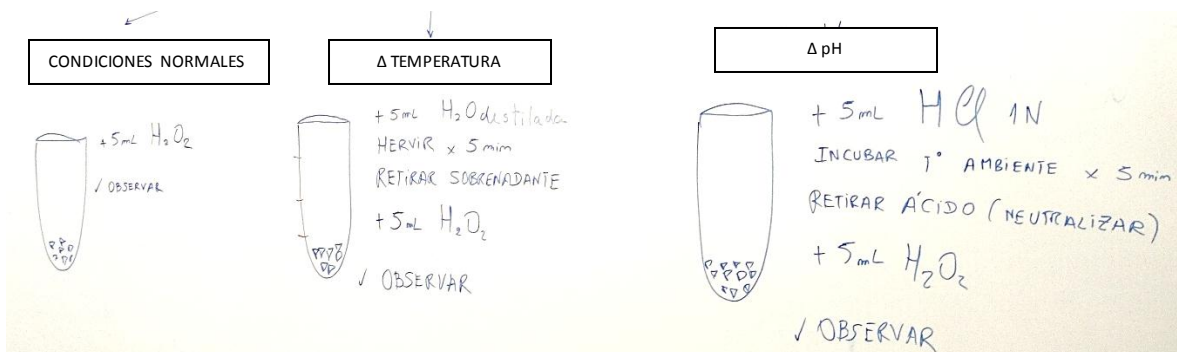 CONDICIONES NORMALES
+5mL H₂O₂
✓ OBSERVAR
Δ TEMPERATURA
+5mL H₂O destilada
HERVIR x 5 min
RETIRAR SOBRENADANTE
+5mL H₂O₂
✓ OBSERVAR
Δ pH
+ 5mL HCl 1N
INCUBAR T° AMBIENTE x 5 min
RETIRAR ÁCIDO (NEUTRALIZAR)
+ 5mL H₂O₂
✓ OBSERVAR